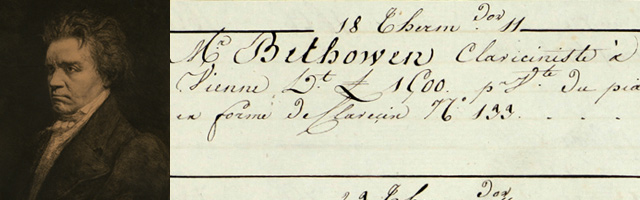 18 Therm.dor 11
Mr. Bethowen Claviciniste à
Vienne D.t £ 1500. p.r V.te du pia
en forme de Clavecin No. 133. . . . .